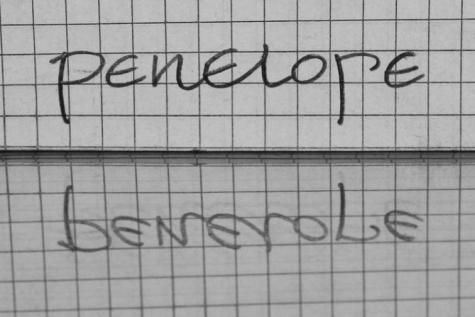 penelope
benevole